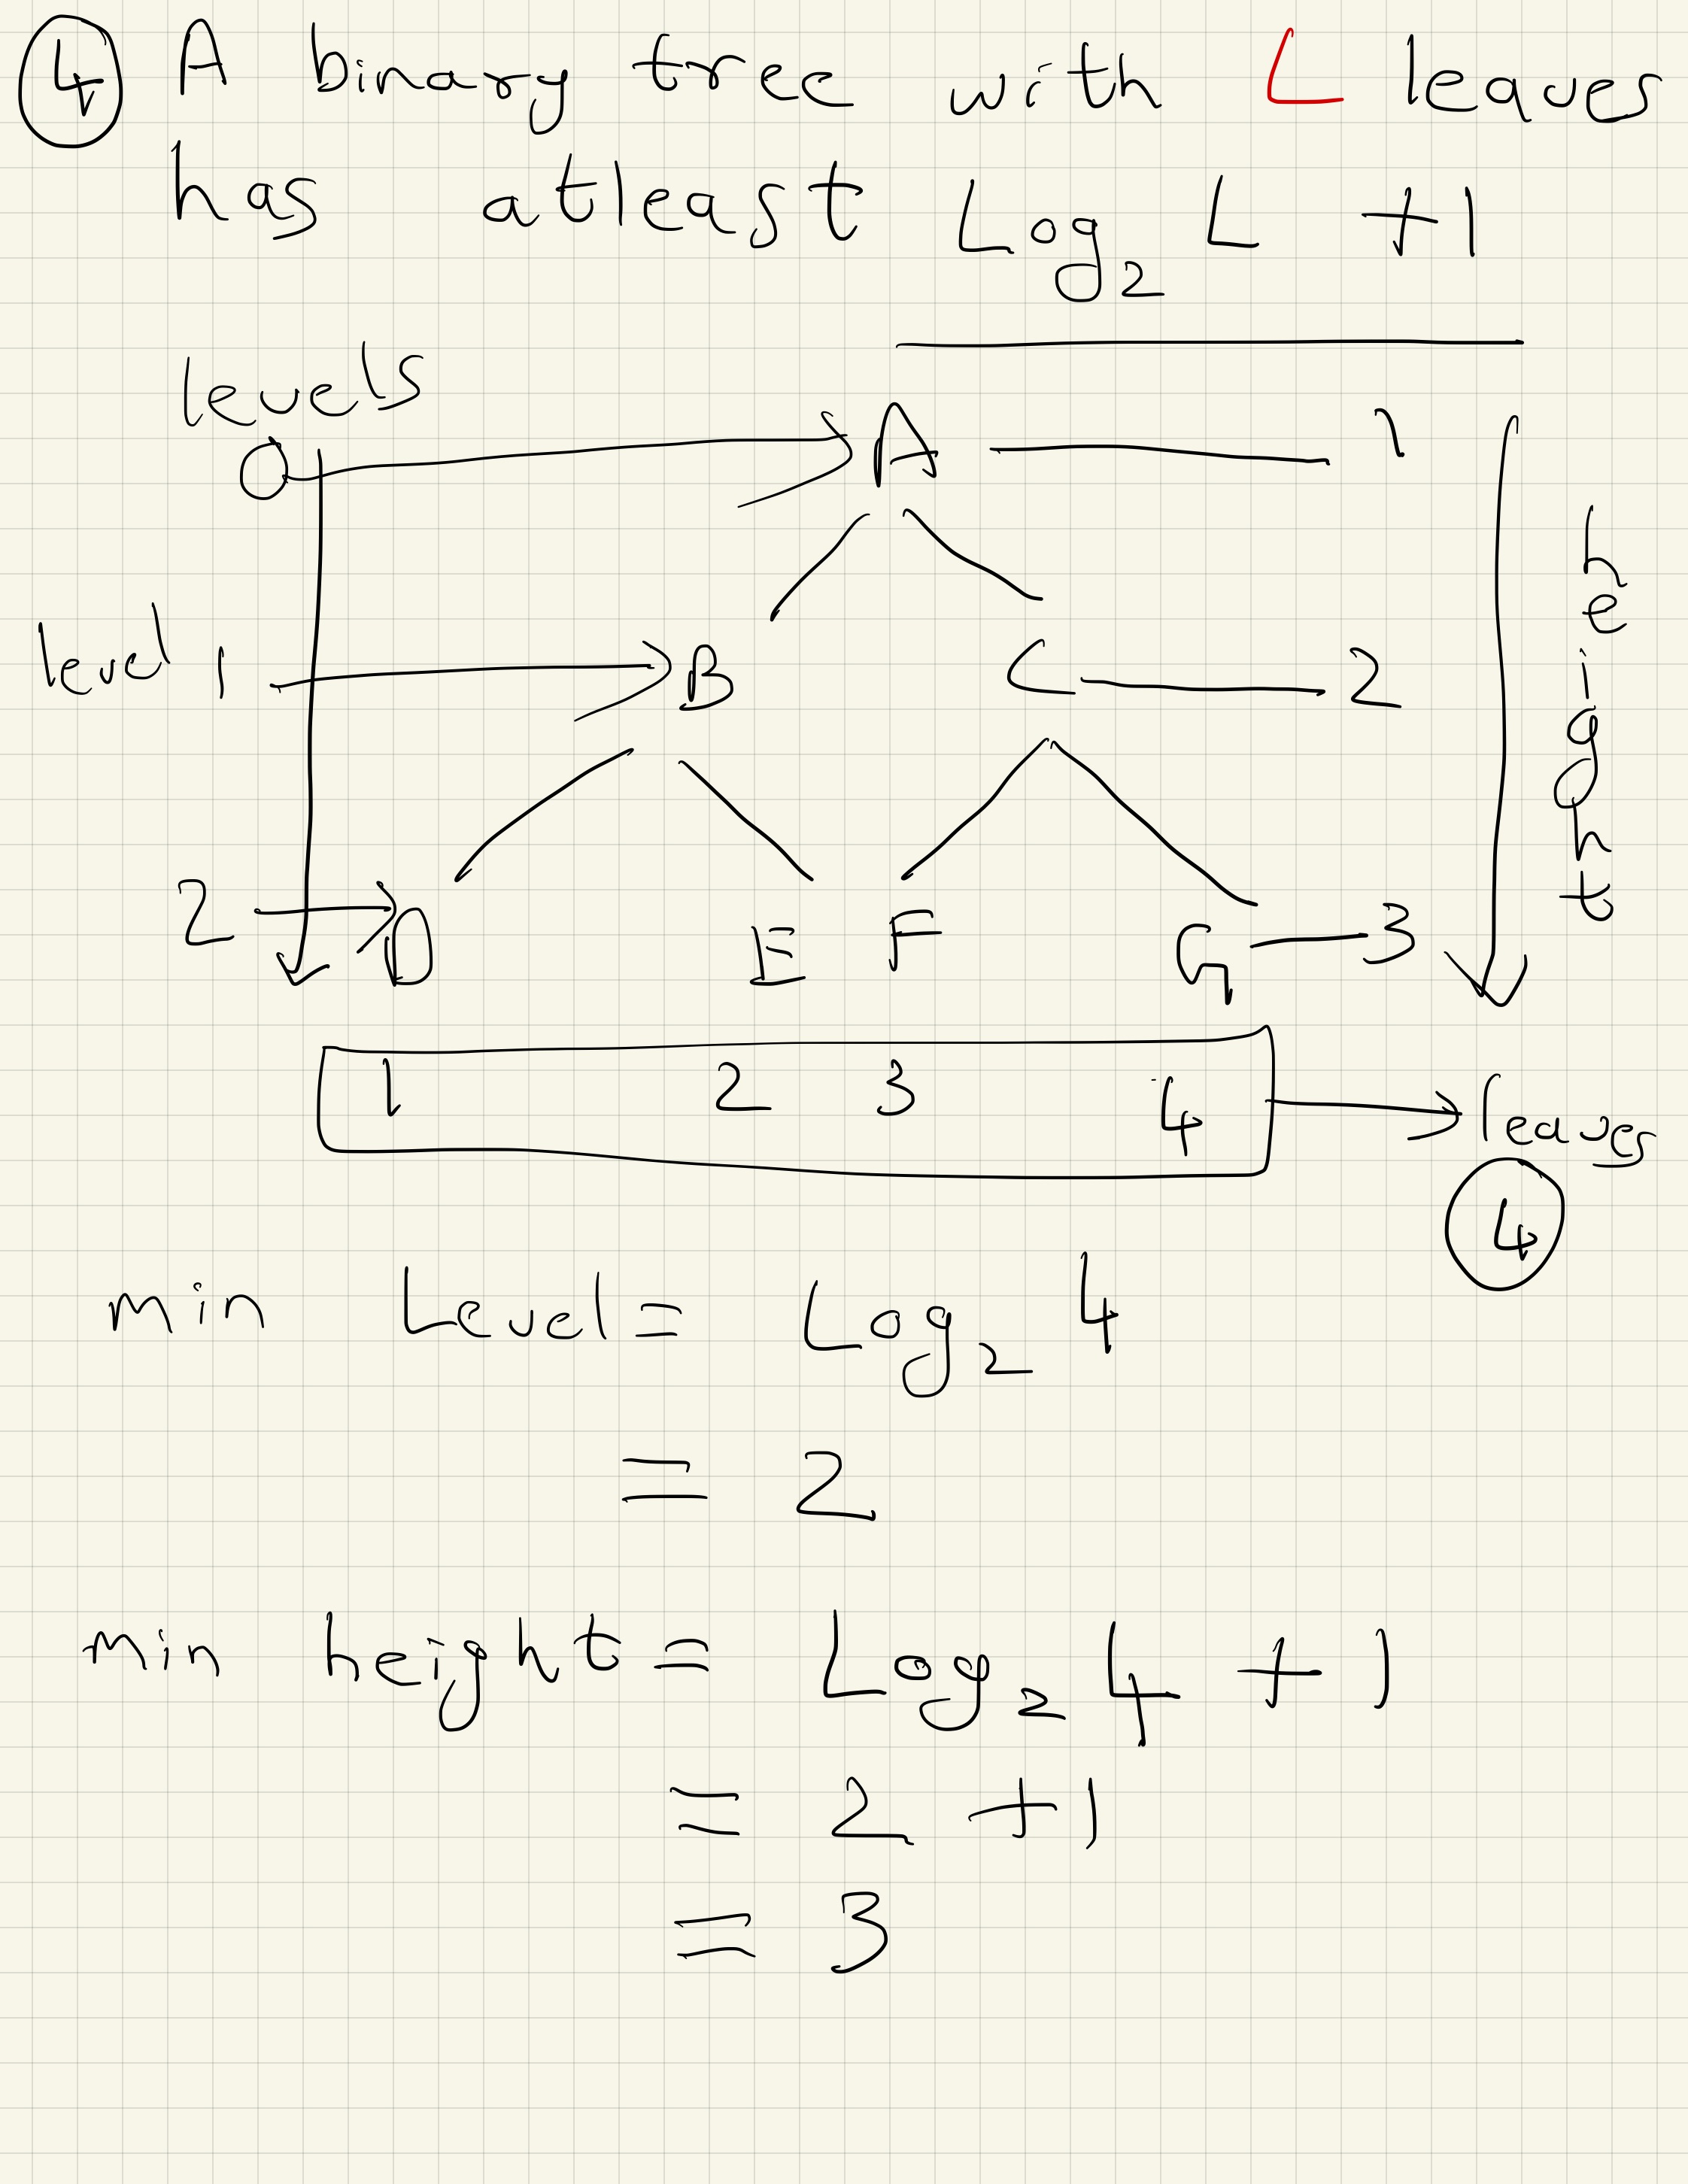 4 A binary tree with L leaves
has atleast Log2 L +1
levels
0 A 1
level 1 B C 2
height
2 D E F G 3
1 2 3 4 leaves
4
min Level = Log2 4
= 2
min height = Log2 4 + 1
= 2 + 1
= 3